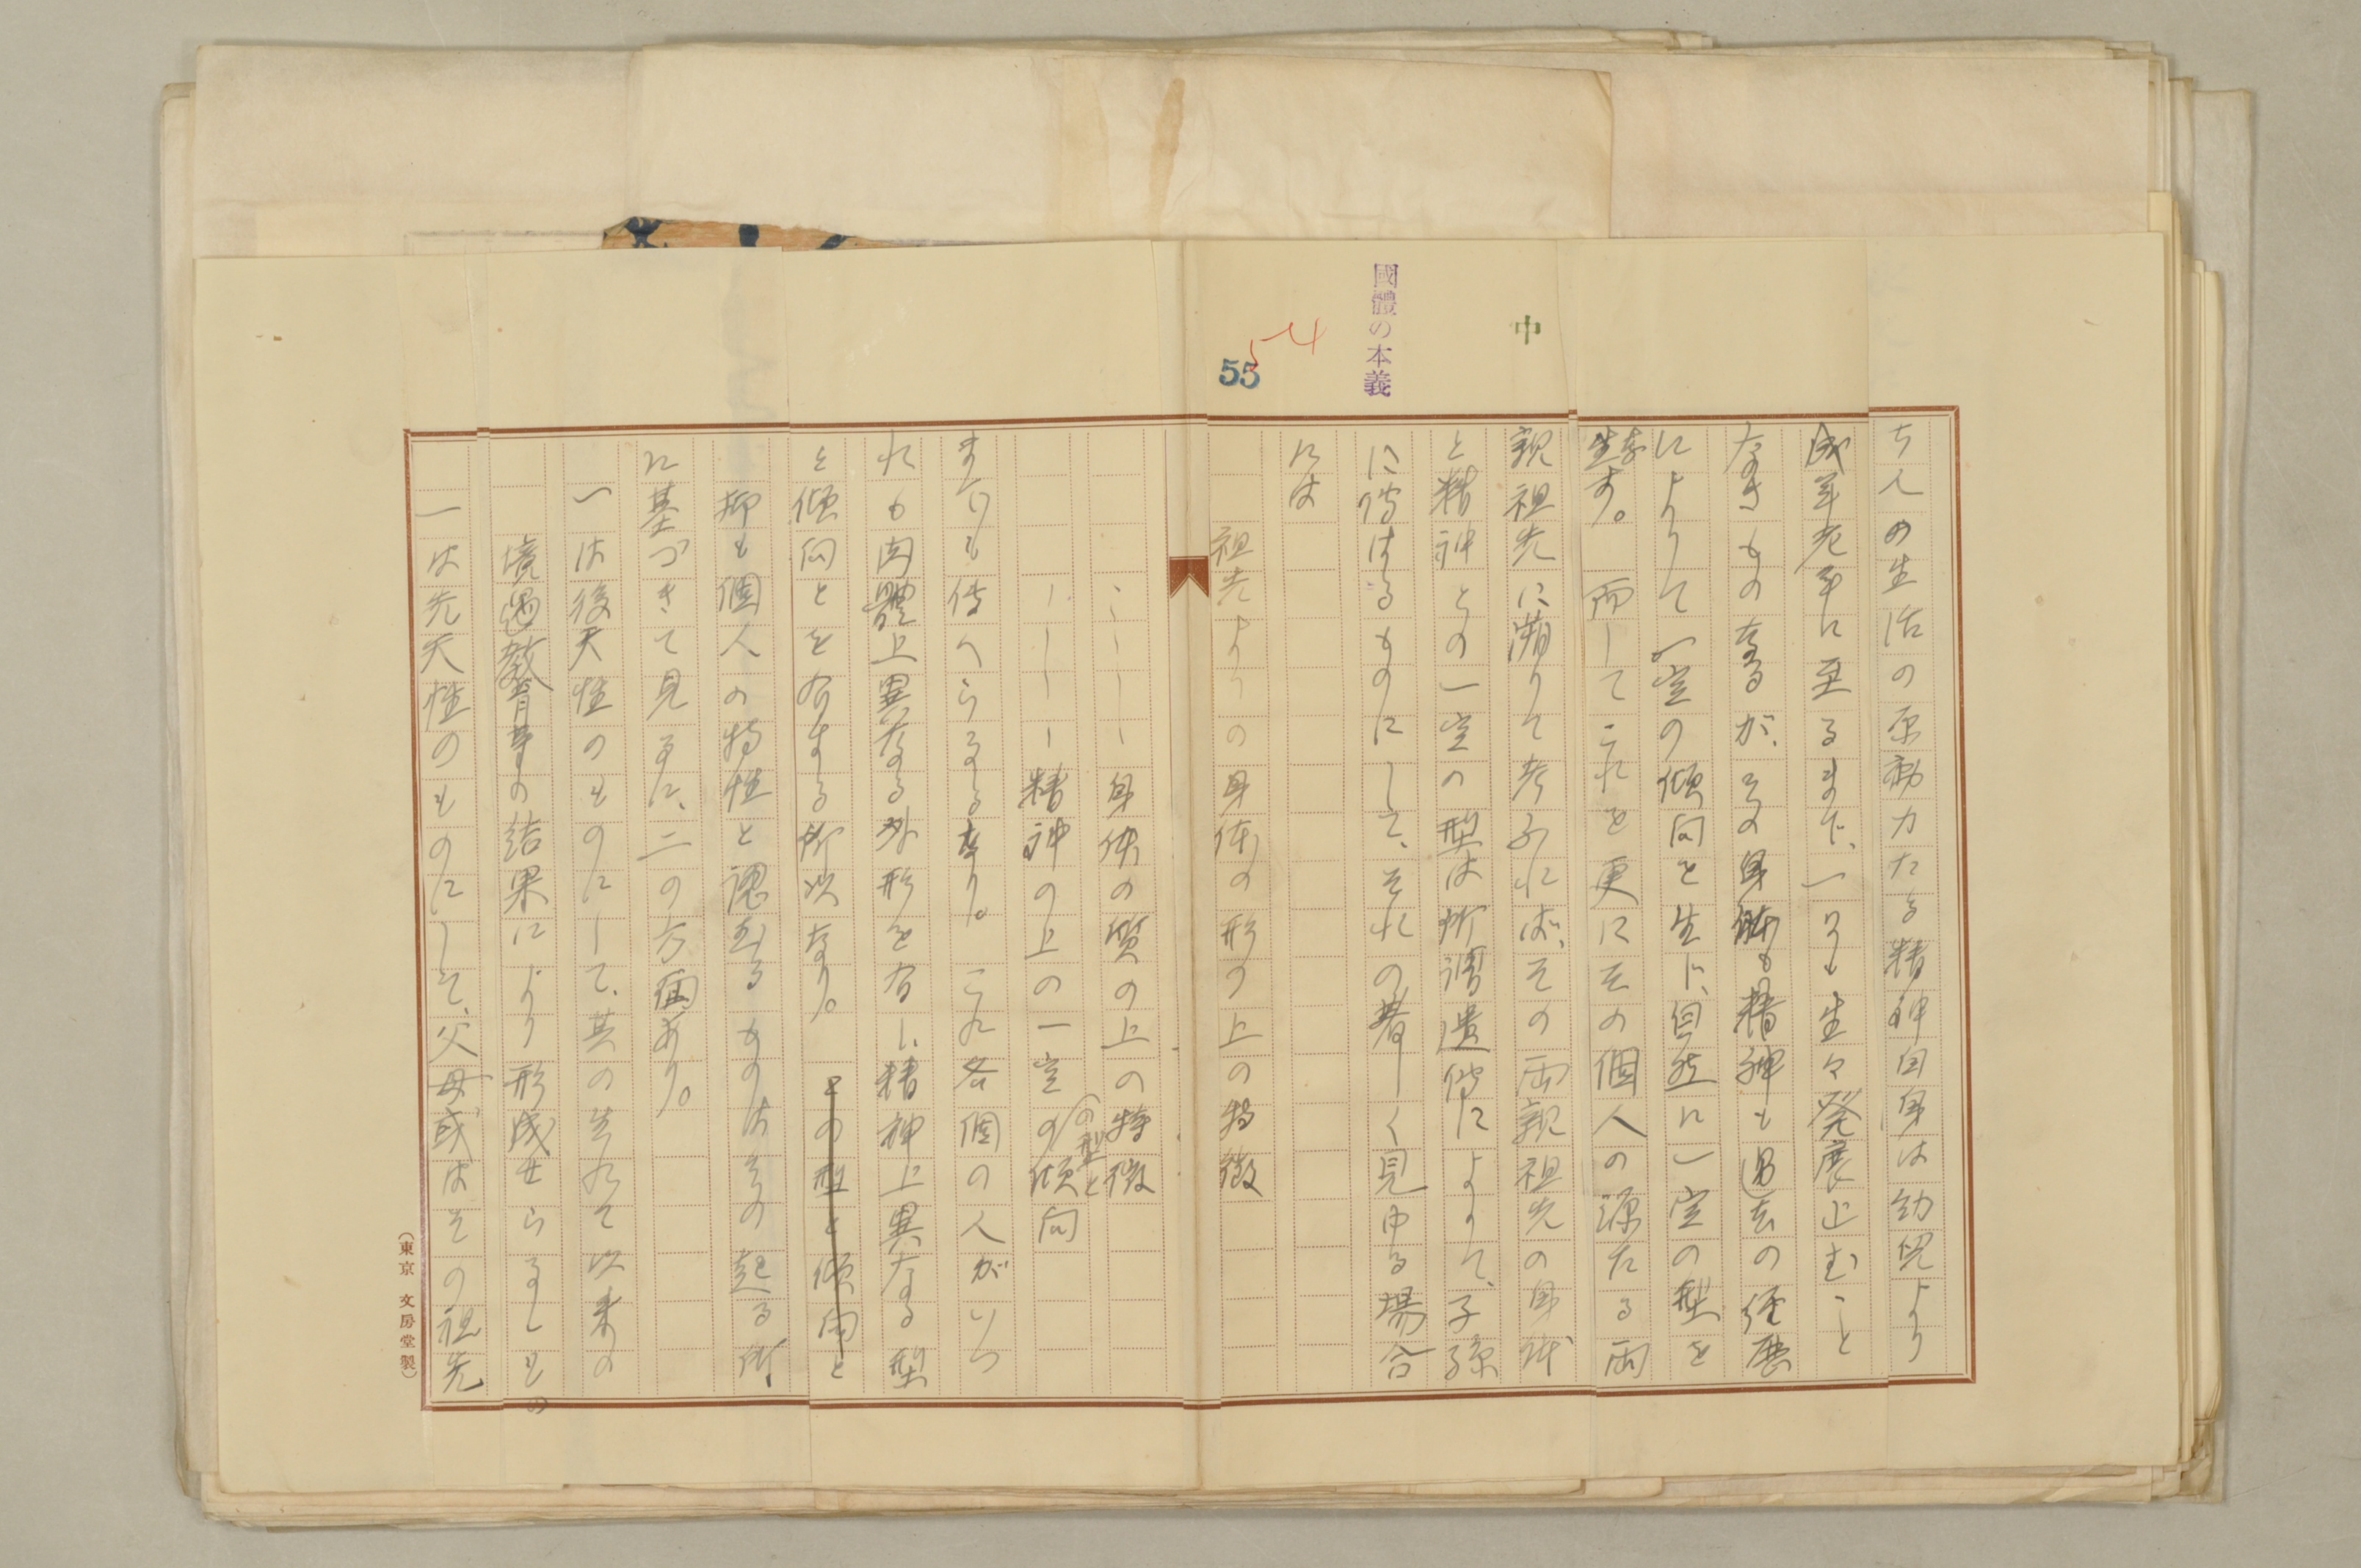 中
國體の本義
54
55
ち人の生活の原動力たる精神自身は幼児より
成年老年に至るまで、一りも生々発展止むこと
なきものなるが、その身体も精神も過去の経歴
によりて一定の傾向を生じ、自然に一定の型を
生ず。而してこれを更にその個人の源たる両
親祖先に溯りて考ふれば、その両親祖先の身体
と精神との一定の型は所謂遺伝によりて、子孫
に伝はるものにして、それの著しく見ゆる場合
には
祖先よりの身体の形の上の特徴
こーーー身体の質の上の特徴
ーーーー精神の上の一定の傾向
の型と
までも伝へらるゝなり。これ各個の人がいづ
れも肉體上異なる外形を有し、精神上異なる型
と傾向とを有する所以なり。その型と傾向と
抑も個人の特性と認むるものはその起る所、
に基づきて見るに、二の方面あり。
一は後天性のものにして、其の生れて以来の
境遇教育等の結果により形成せらるゝもの
一は先天性のものにして、父母或はその祖先
(東京 文房堂製)